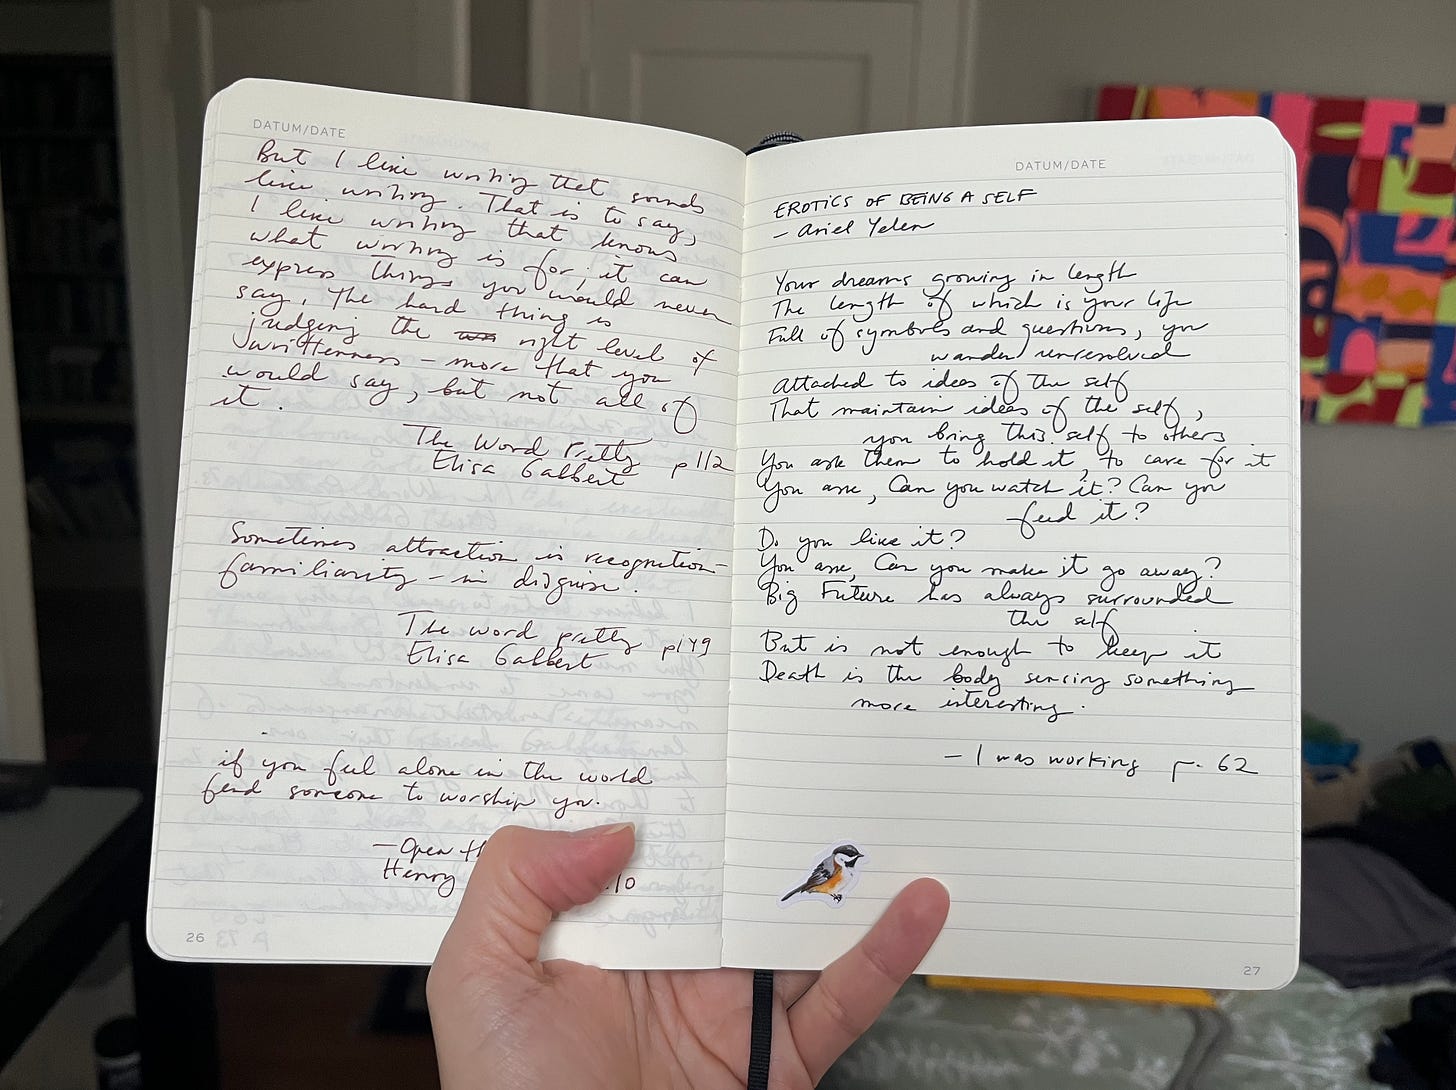 DATUM/DATE
But I like writing that sounds
like writing. That is to say,
I like writing that knows
what writing is for; it can
express things you would never
say. The hard thing is
judging the right level of
writtenness – more that you
would say, but not all of
it.
The Word Pretty p 112
Elisa Gabbert
Sometimes attraction is recognition –
familiarity – in disguise.
The word pretty p149
Elisa Gabbert
if you feel alone in the world
find someone to worship you.
– Open
Henry 10
26
DATUM/DATE
EROTICS OF BEING A SELF
– Ariel Yelen
Your dreams growing in length
The length of which is your life
Full of symbols and questions, you
wander unresolved
Attached to ideas of the self
That maintain ideas of the self,
you bring this self to others
You ask them to hold it, to care for it
You ask, Can you watch it? Can you
feed it?
Do you like it?
You ask, Can you make it go away?
Big Future has always surrounded
the self
But is not enough to keep it
Death is the body sensing something
more interesting.
– I was working p. 62
27